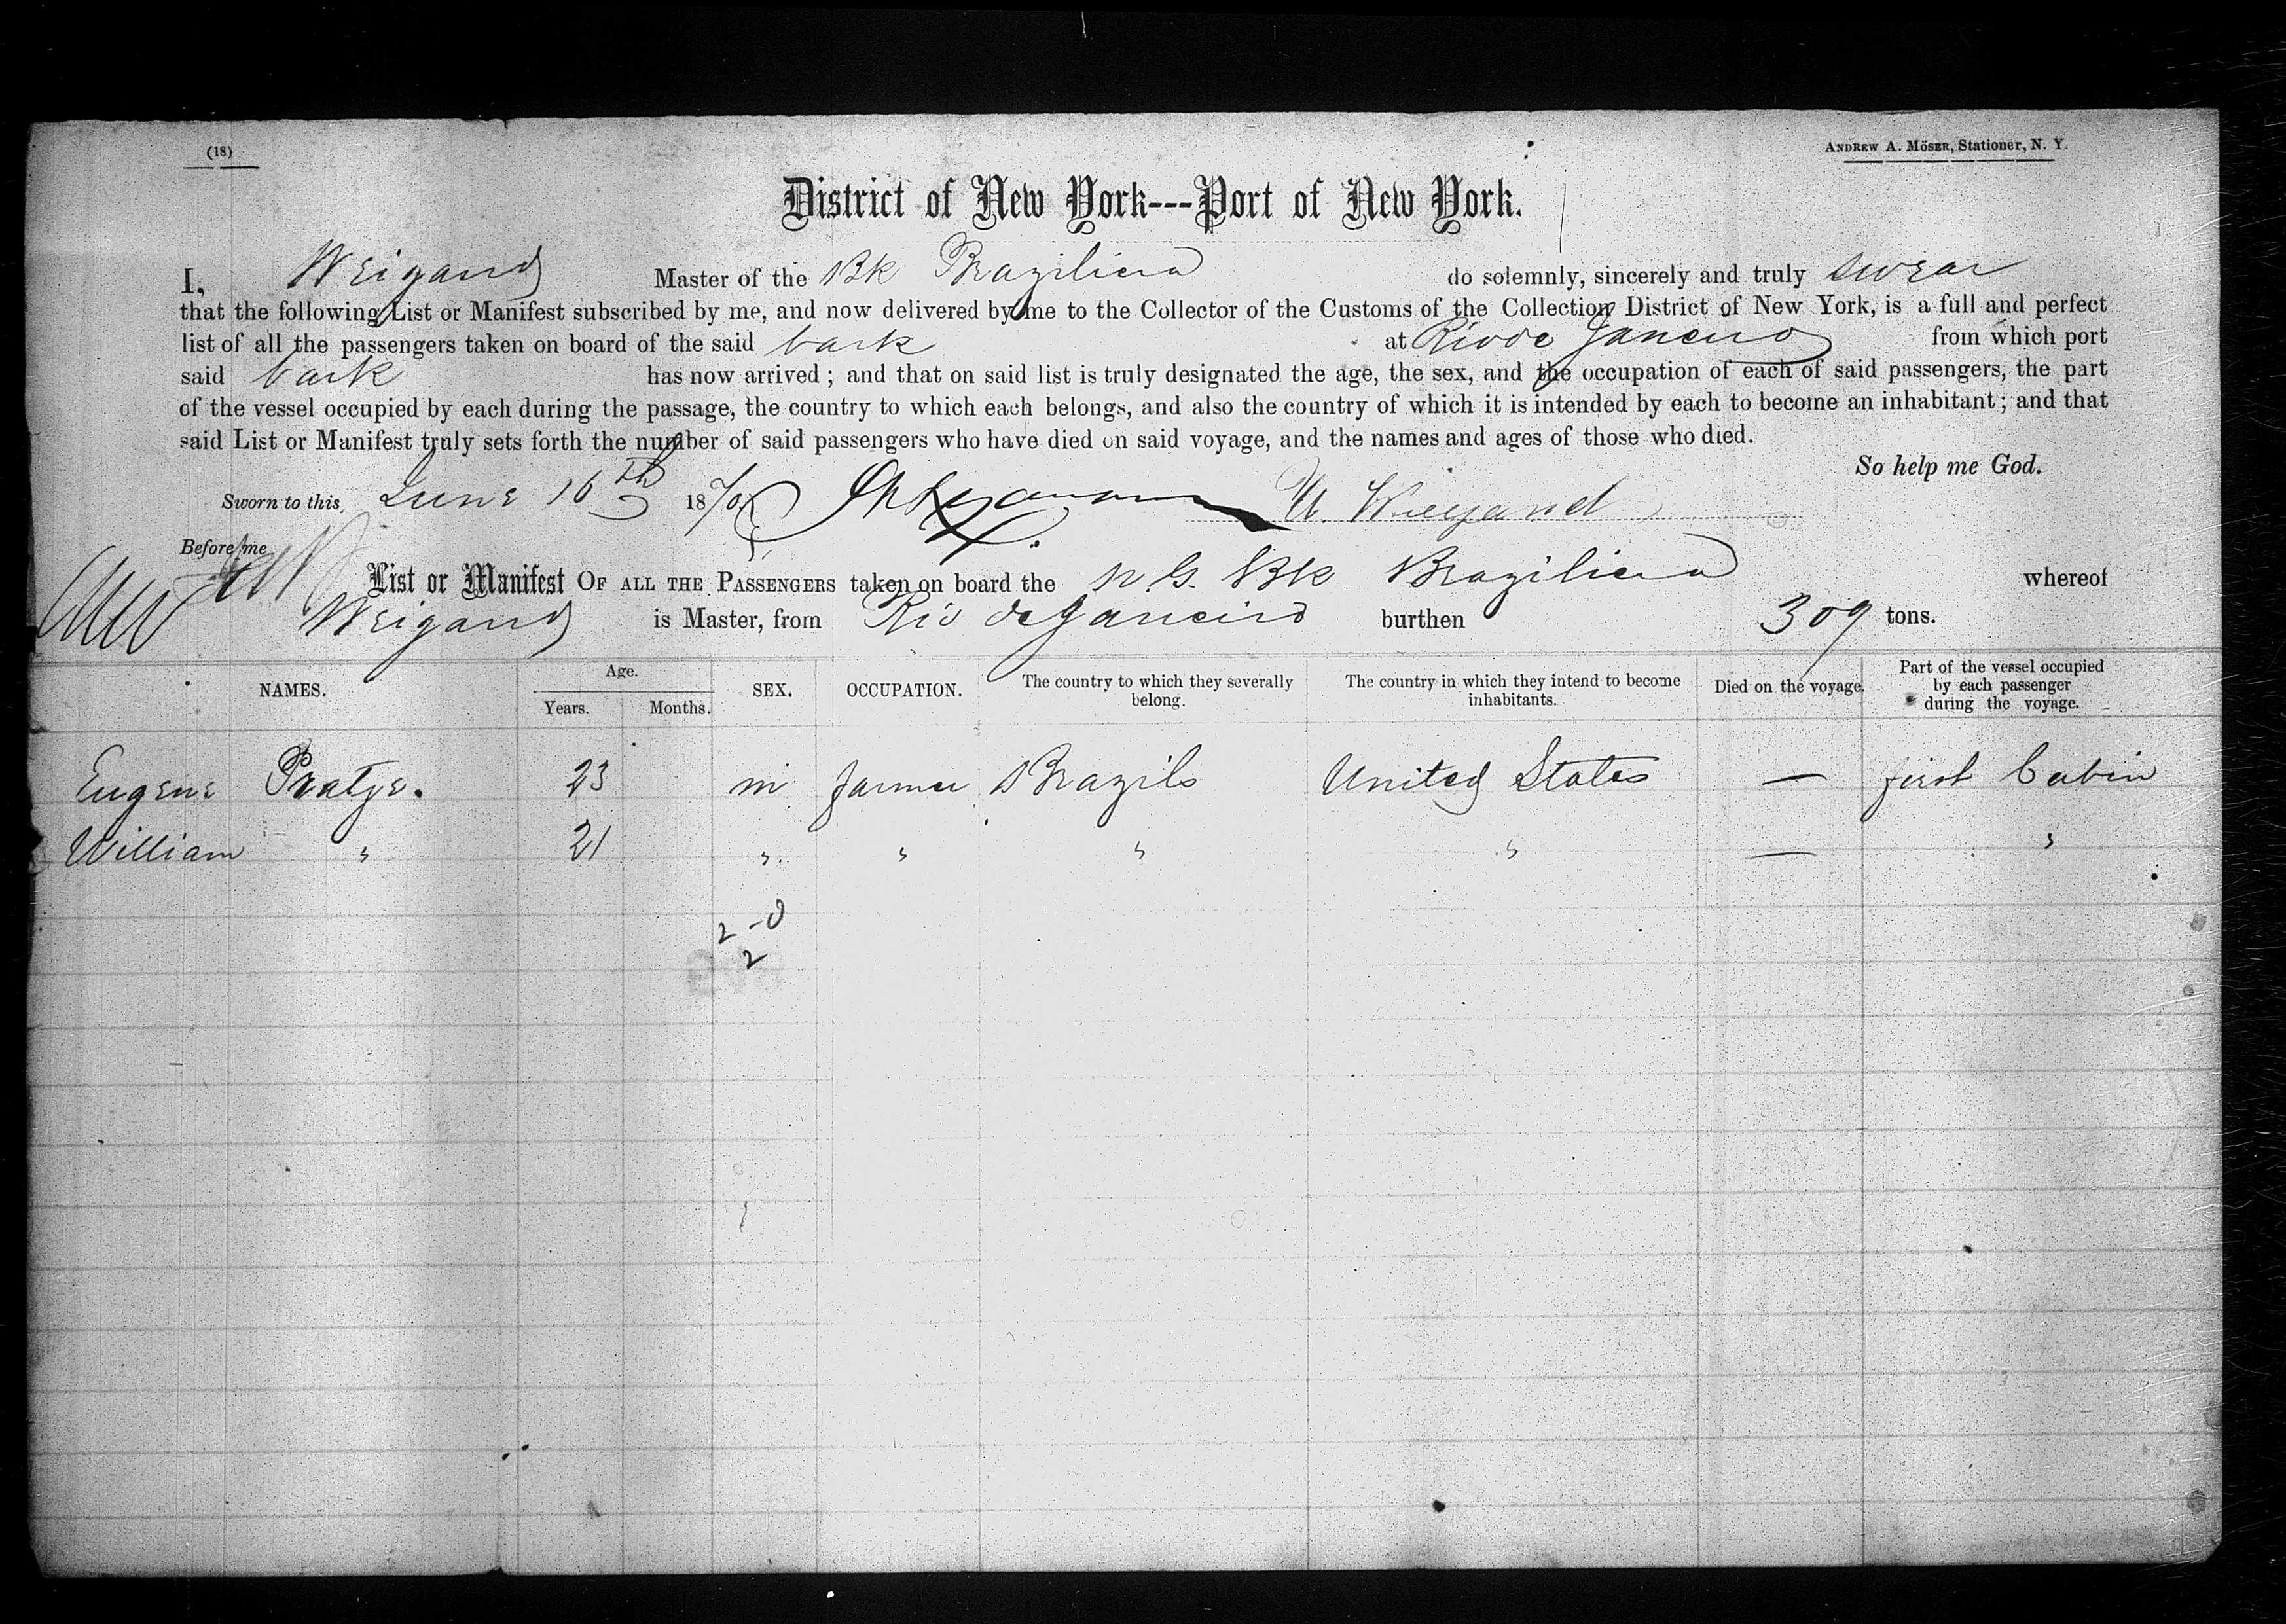 (18)
ANDREW A. MÖSER, Stationer, N. Y.
District of New York---Port of New York.
I, Weigand Master of the Bk Braziliera do solemnly, sincerely and truly swear
that the following List or Manifest subscribed by me, and now delivered by me to the Collector of the Customs of the Collection District of New York, is a full and perfect
list of all the passengers taken on board of the said bark at Rio de Janeiro from which port
said bark has now arrived; and that on said list is truly designated the age, the sex, and the occupation of each of said passengers, the part
of the vessel occupied by each during the passage, the country to which each belongs, and also the country of which it is intended by each to become an inhabitant; and that
said List or Manifest truly sets forth the number of said passengers who have died on said voyage, and the names and ages of those who died.
So help me God.
Sworn to this June 16th 1870 Wiegand
Before me
List or Manifest OF ALL THE PASSENGERS taken on board the N. G. Bk Braziliera whereof
Weigand is Master, from Rio de Janeiro burthen 309 tons.
NAMES. Age. Years. Months. SEX. OCCUPATION. The country to which they severally belong. The country in which they intend to become inhabitants. Died on the voyage. Part of the vessel occupied by each passenger during the voyage.
Eugene Pratye. 23 m farmer Brazils United States — first Cabin
William " 21 " " " " — "
2-0
2